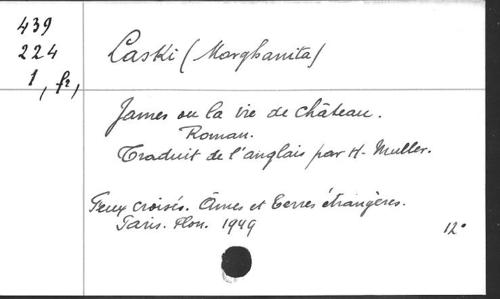 439
224
1, fr,
Laski (Marghanita)
James ou la vie de château.
Roman.
Traduit de l'anglais par H. Muller.
Feux croisés. Âmes et terres étrangères.
Paris. Plon. 1949
12°